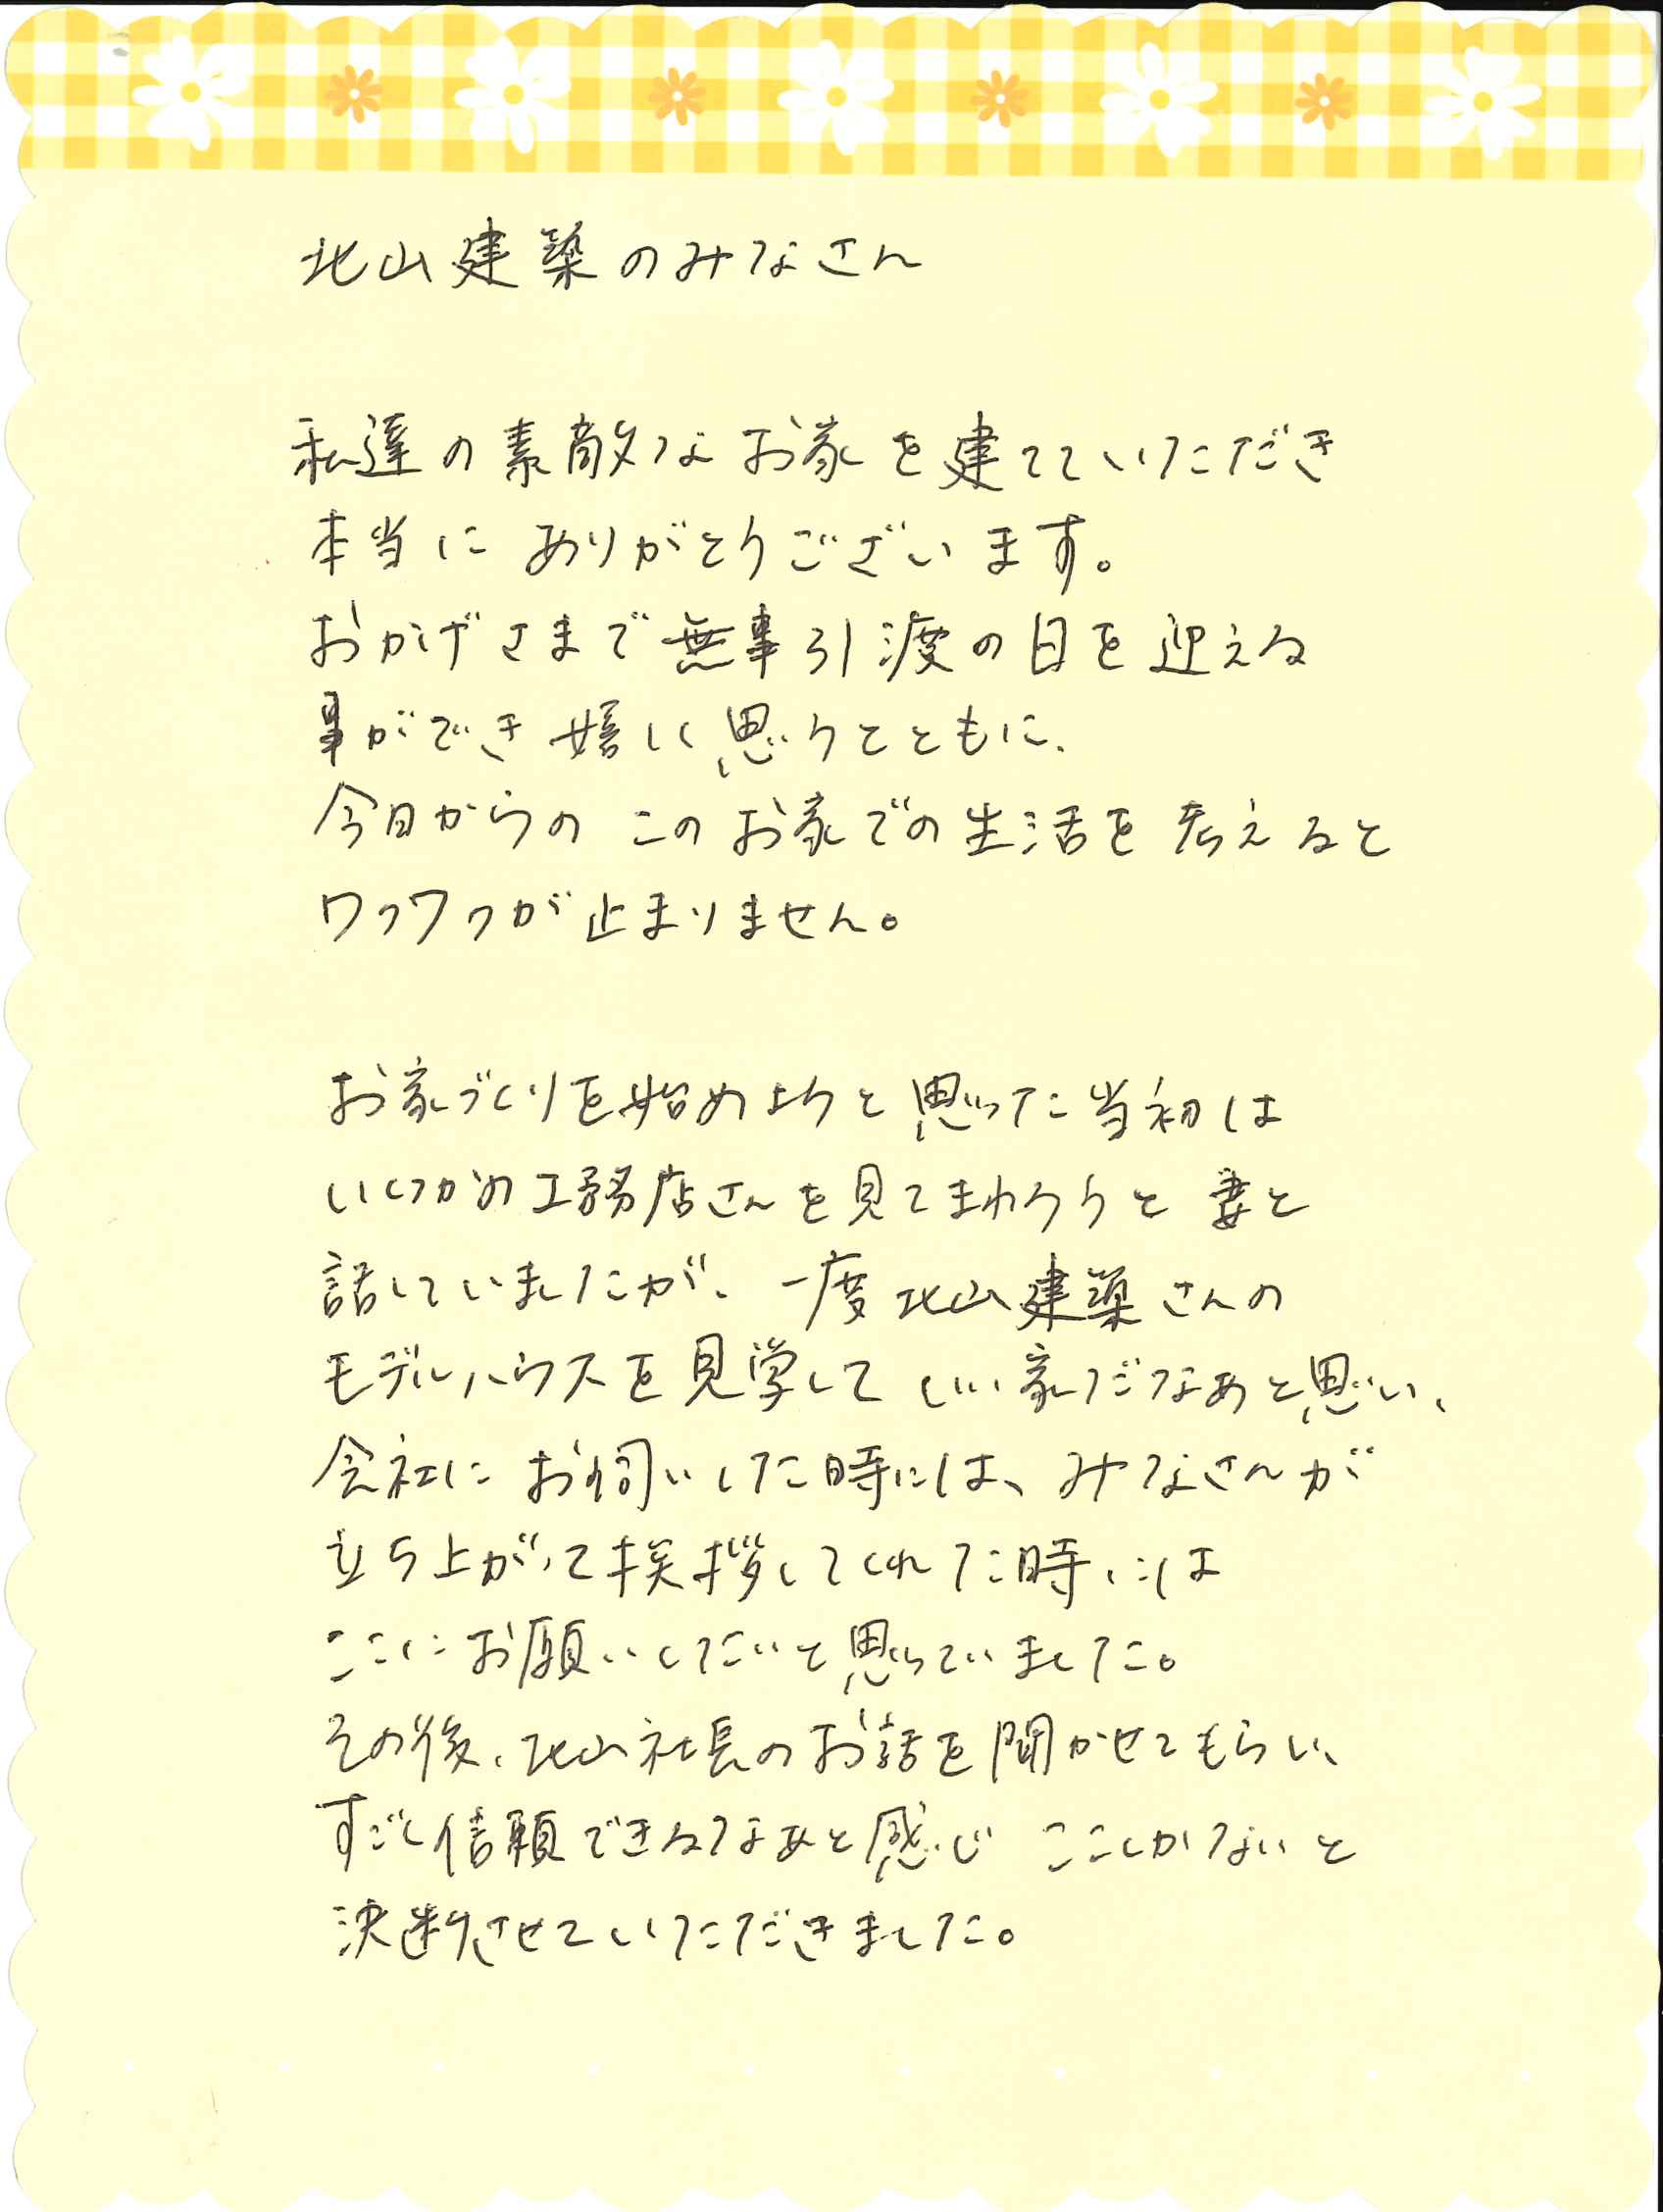 北山建築のみなさん
私達の素敵なお家を建てていただき
本当にありがとうございます。
おかげさまで無事引渡の日を迎える
事ができ嬉しく思うとともに、
今日からの このお家での生活を考えると
ワクワクが止まりません。
お家づくりを始めようと思った当初は
いくつかの工務店さんを見てまわろうと妻と
話していましたが、一度北山建築さんの
モデルハウスを見学していい家だなぁと思い、
会社にお伺いした時には、みなさんが
立ち上がって挨拶してくれた時には
ここにお願いしたいと思っていました。
その後、北山社長のお話を聞かせてもらい、
すごく信頼できるなぁと感じ ここしかないと
決断させていただきました。